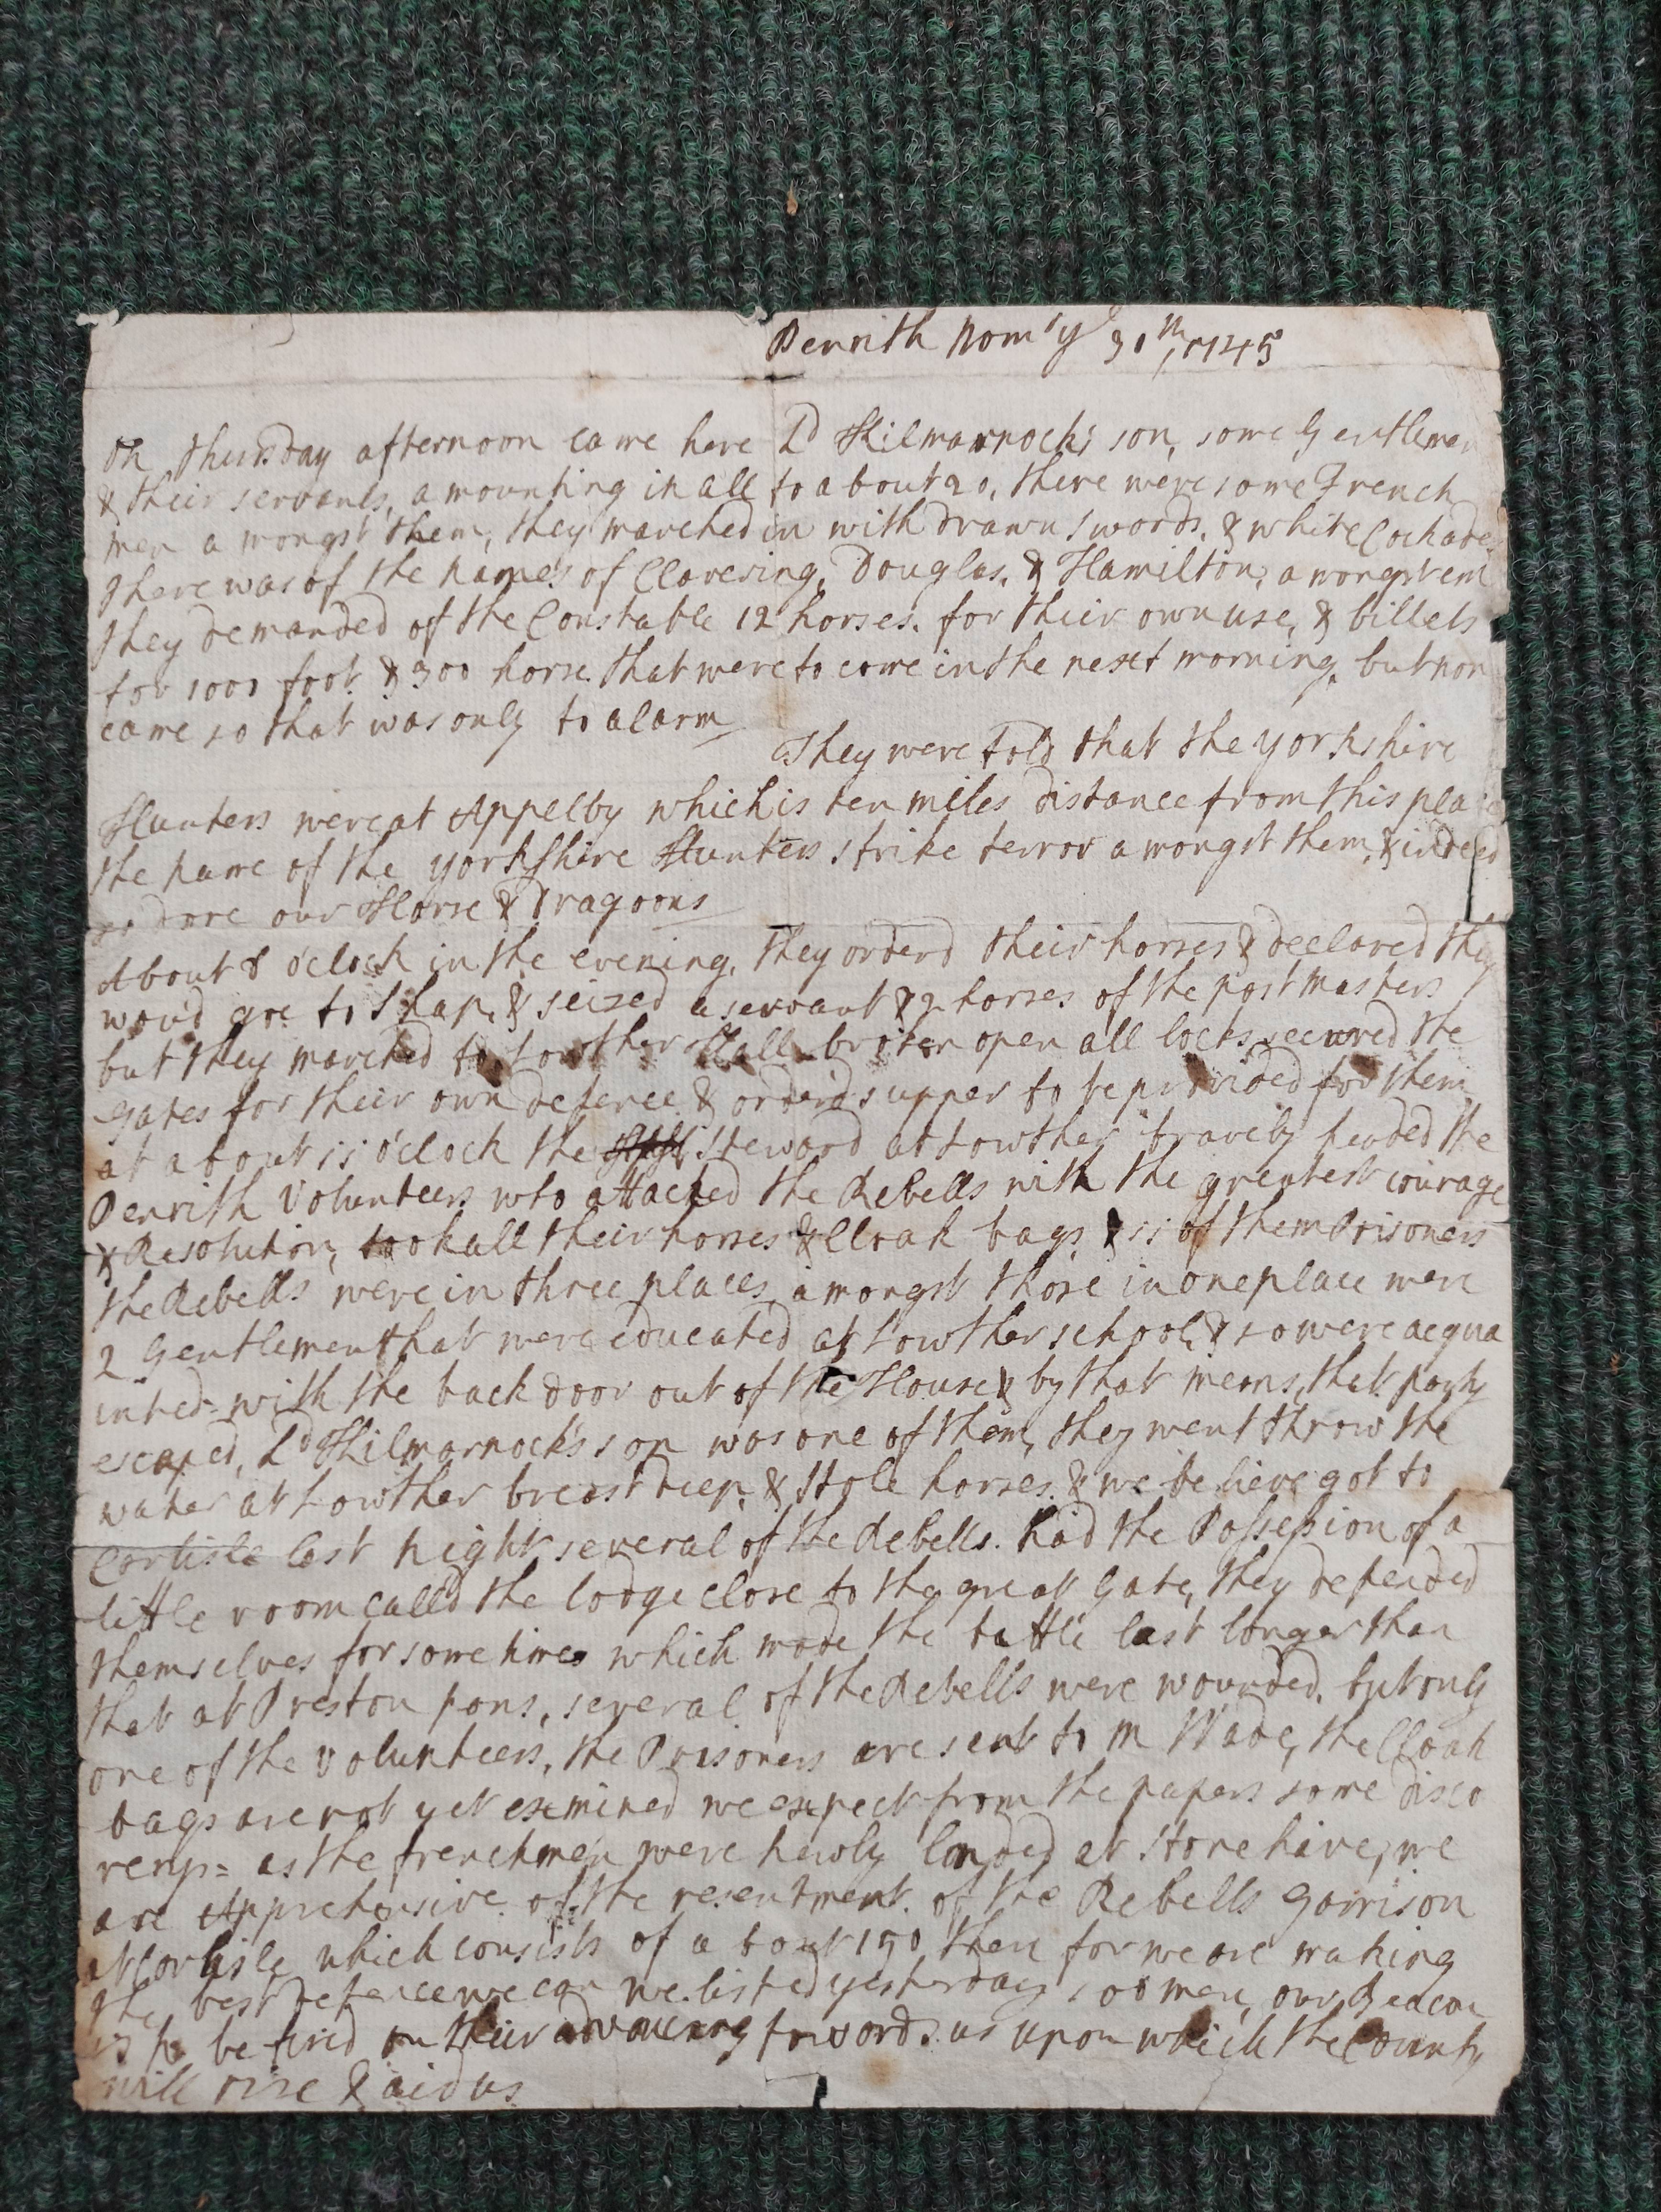 Penrith Novm'r ye 30th 1745
On thursday afternoon came here Ld Kilmarnocks son, some Gentlemen
& their servants, amounting in all to about 20, there were some French
men amongst them, they marched in with drawn swords, & white Cockades
there was of the names of Clavering, Douglas, & Hamilton, amongst em
they demanded of the Constable 12 horses. for their own use, & billets
for 1000 foot & 300 horse that were to come in the next morning, but non
came so that was only to alarm
They were told that the yorkshire
Hunters were at Appelby which is ten miles distance from this place
the name of the yorkshire Hunters strike terror amongst them, & indeed
so dare our Horse & Dragoons
About 8 o'clock in the evening, they orderd their horses & declared they
wou'd goe to Shap, & seized a servant & 2 horses of the post masters
but they marched to Lowther Hall broken open all locks secured the
gates for their own defence & order'd supper to be provided for them
at about 11 o'clock the Steward at Lowther bravely headed the
Penrith Volunteers who attacked the Rebells with the greatest courage
& Resolution, took all their horses & Cloak bags & 11 of them Prisoners
the Rebells were in three places, amongst those in one place were
2 Gentlemen that were educated at Lowther school, & so were acqua
inted with the back door out of the House & by that means, that party
escaped, Ld Kilmarnock's son was one of them, they went throw the
water at Lowther breast deep, & stole horses & we believe got to
Carlisle last night several of the Rebells. had the Possession of a
little room call'd the lodge close to the great Gate, they defended
themselves for some time which made the battle last longer than
that at Preston pans, several of the Rebells were wounded, but only
one of the Volunteers, the Prisoners are sent to M Wade, the Cloak
bags are not yet exemined we expect from the papers some disco
verys = as the frenchmen were newly landed at Stone hive, we
are Apprehensive of the resentment of the Rebells Garrison
at Carlisle which consists of about 150, there for we are making
the best defence we can we listed yesterday 100 men, our Beacon
is to be fired on their advancing forwards us upon which the County
will rise & aid us